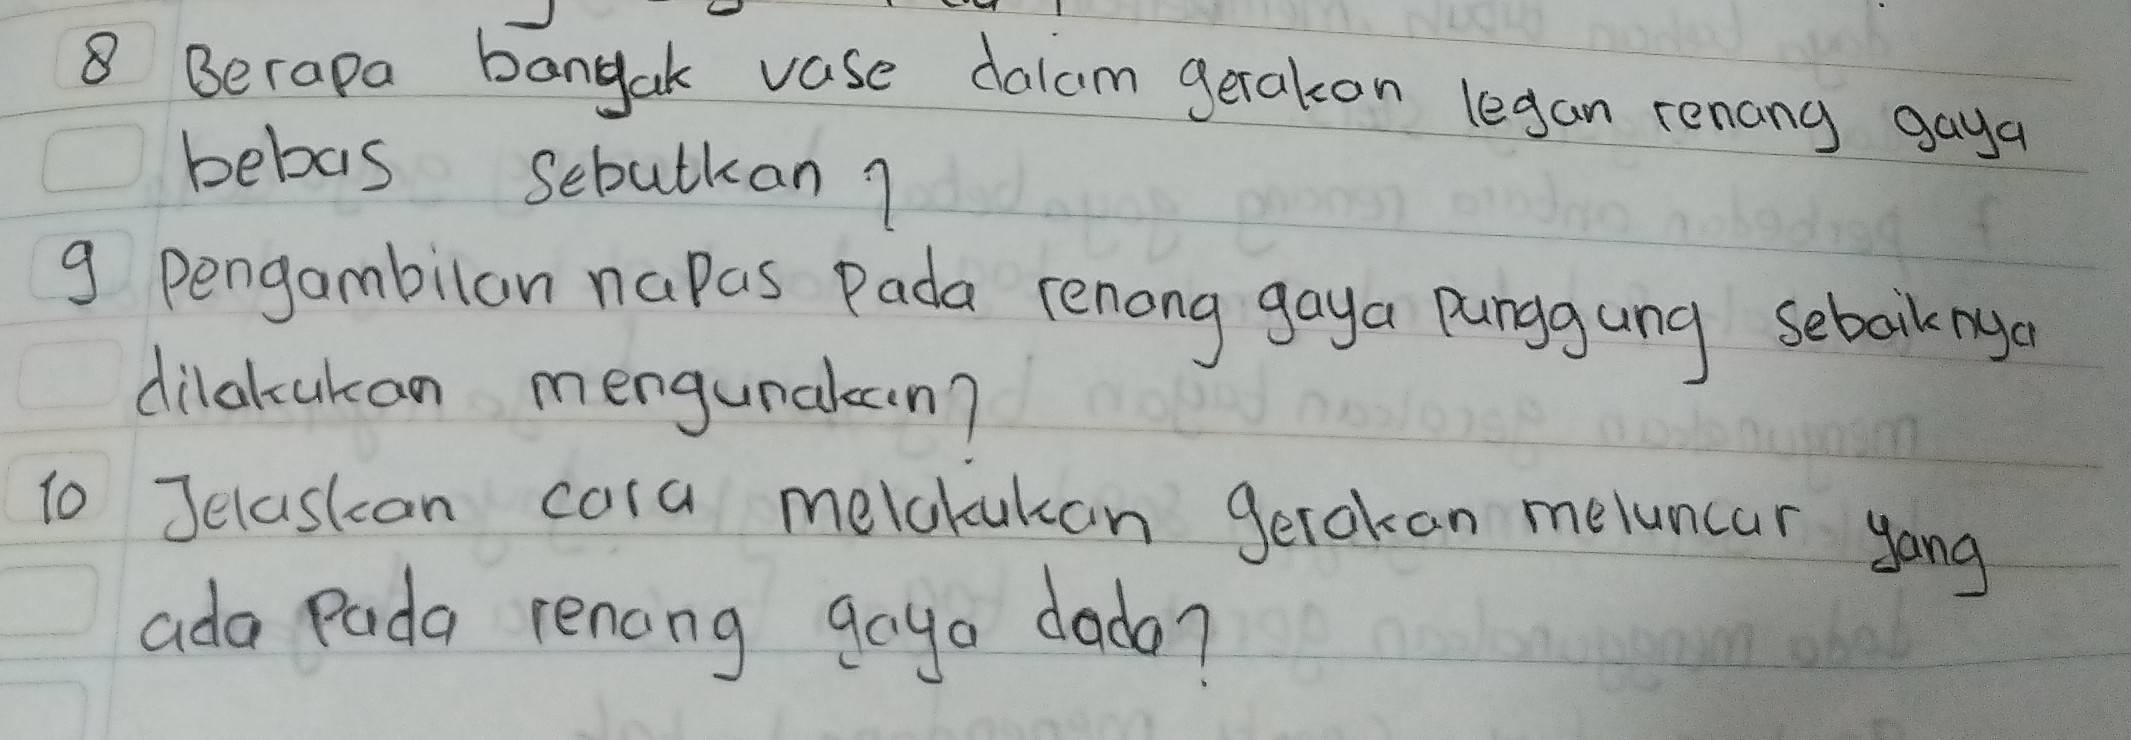 8 Berapa bangak vase dalam gerakan legan renang gaya
bebas sebutkan?
9 Pengambilan napas Pada renang gaya punggung sebaiknya
dilakukan mengunakan?
10 Jelaskan cara melakukan gerakan meluncur yang
ada Pada renang gaya dada?